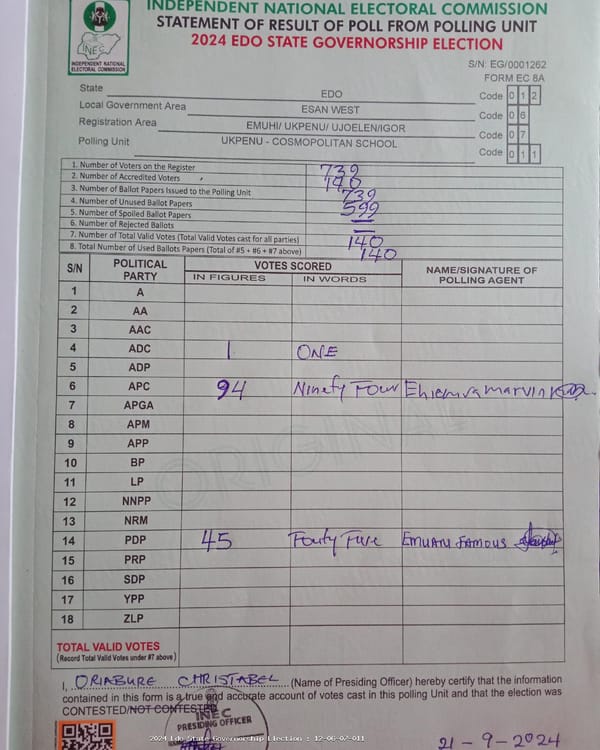 INDEPENDENT NATIONAL ELECTORAL COMMISSION
STATEMENT OF RESULT OF POLL FROM POLLING UNIT
2024 EDO STATE GOVERNORSHIP ELECTION
INEC
INDEPENDENT NATIONAL
ELECTORAL COMMISSION
S/N: EG/0001262
FORM EC 8A
State EDO Code 0 1 2
Local Government Area ESAN WEST Code 0 6
Registration Area EMUHI/ UKPENU/ UJOELEN/IGOR Code 0 7
Polling Unit UKPENU - COSMOPOLITAN SCHOOL Code 0 1 1
1. Number of Voters on the Register 739
2. Number of Accredited Voters 140
3. Number of Ballot Papers Issued to the Polling Unit 739
4. Number of Unused Ballot Papers 599
5. Number of Spoiled Ballot Papers —
6. Number of Rejected Ballots —
7. Number of Total Valid Votes (Total Valid Votes cast for all parties) 140
8. Total Number of Used Ballots Papers (Total of #5 + #6 + #7 above) 140
S/N POLITICAL PARTY VOTES SCORED NAME/SIGNATURE OF POLLING AGENT
IN FIGURES IN WORDS
1 A
2 AA
3 AAC
4 ADC 1 ONE
5 ADP
6 APC 94 Ninety Four
7 APGA
8 APM
9 APP
10 BP
11 LP
12 NNPP
13 NRM
14 PDP 45 Fourty Five EMUAN FAMOUS
15 PRP
16 SDP
17 YPP
18 ZLP
ORIGINAL
TOTAL VALID VOTES
(Record Total Valid Votes under #7 above)
I, ORIABURE CHRISTABEL (Name of Presiding Officer) hereby certify that the information
contained in this form is a true and accurate account of votes cast in this polling Unit and that the election was
CONTESTED/NOT CONTESTED
INEC
PRESIDING OFFICER
2024 Edo State Governorship Election : 12-06-07-011
21-9-2024